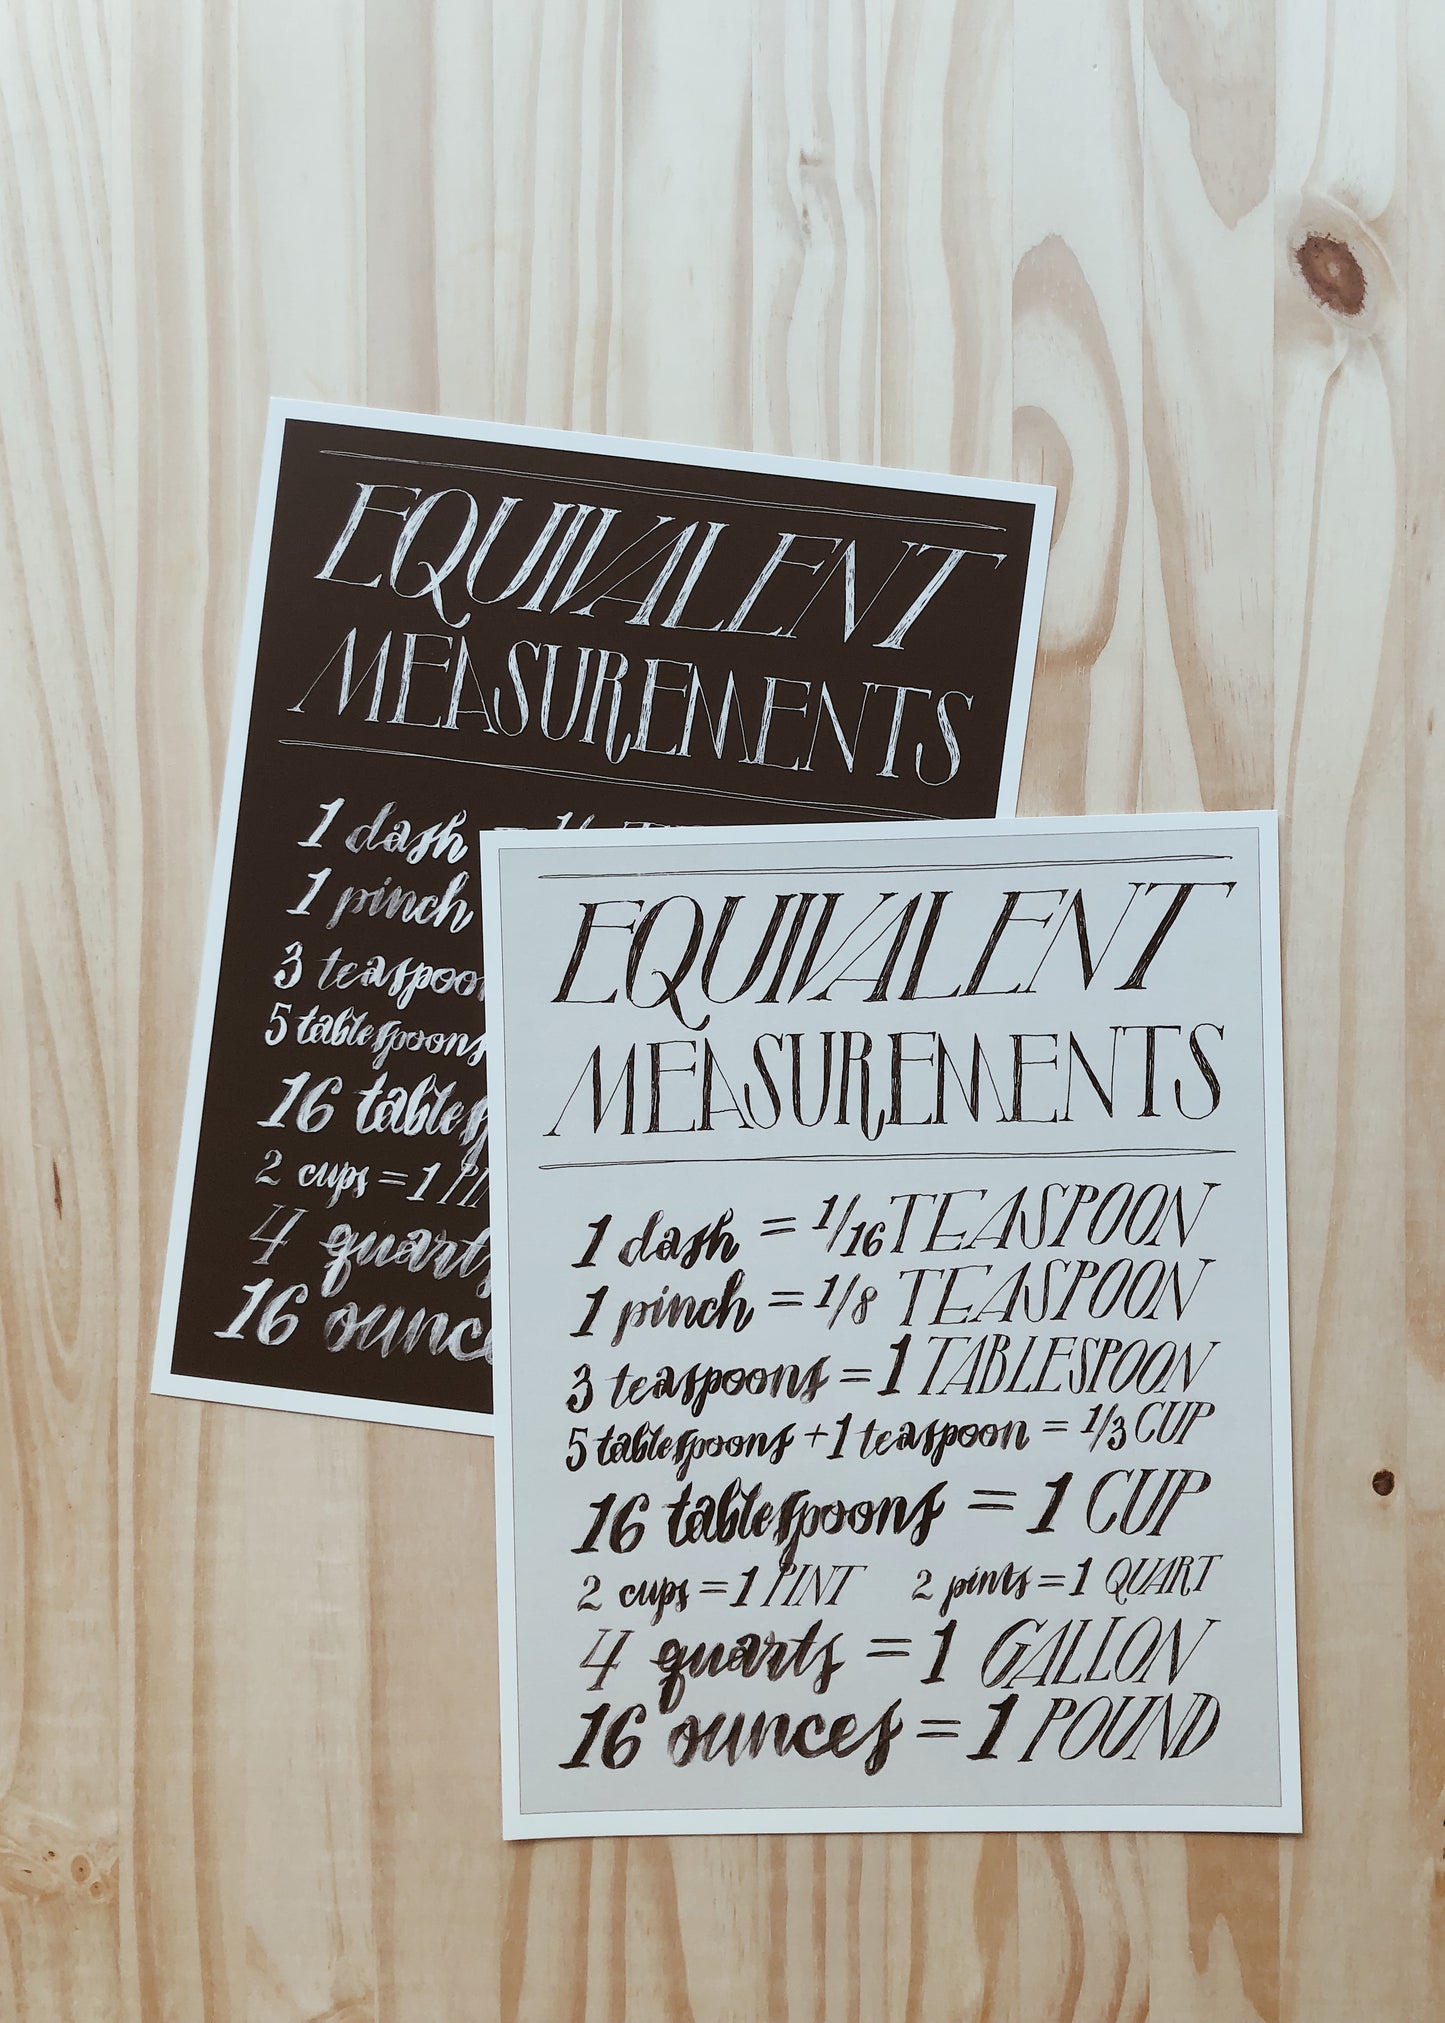 EQUIVALENT
MEASUREMENTS
1 dash
1 pinch
3 teaspoon
5 tablespoons
16 tables
2 cups = 1 PIN
4 quarts
16 ounce
EQUIVALENT
MEASUREMENTS
1 dash = 1/16 TEASPOON
1 pinch = 1/8 TEASPOON
3 teaspoons = 1 TABLESPOON
5 tablespoons + 1 teaspoon = 1/3 CUP
16 tablespoons = 1 CUP
2 cups = 1 PINT 2 pints = 1 QUART
4 quarts = 1 GALLON
16 ounces = 1 POUND